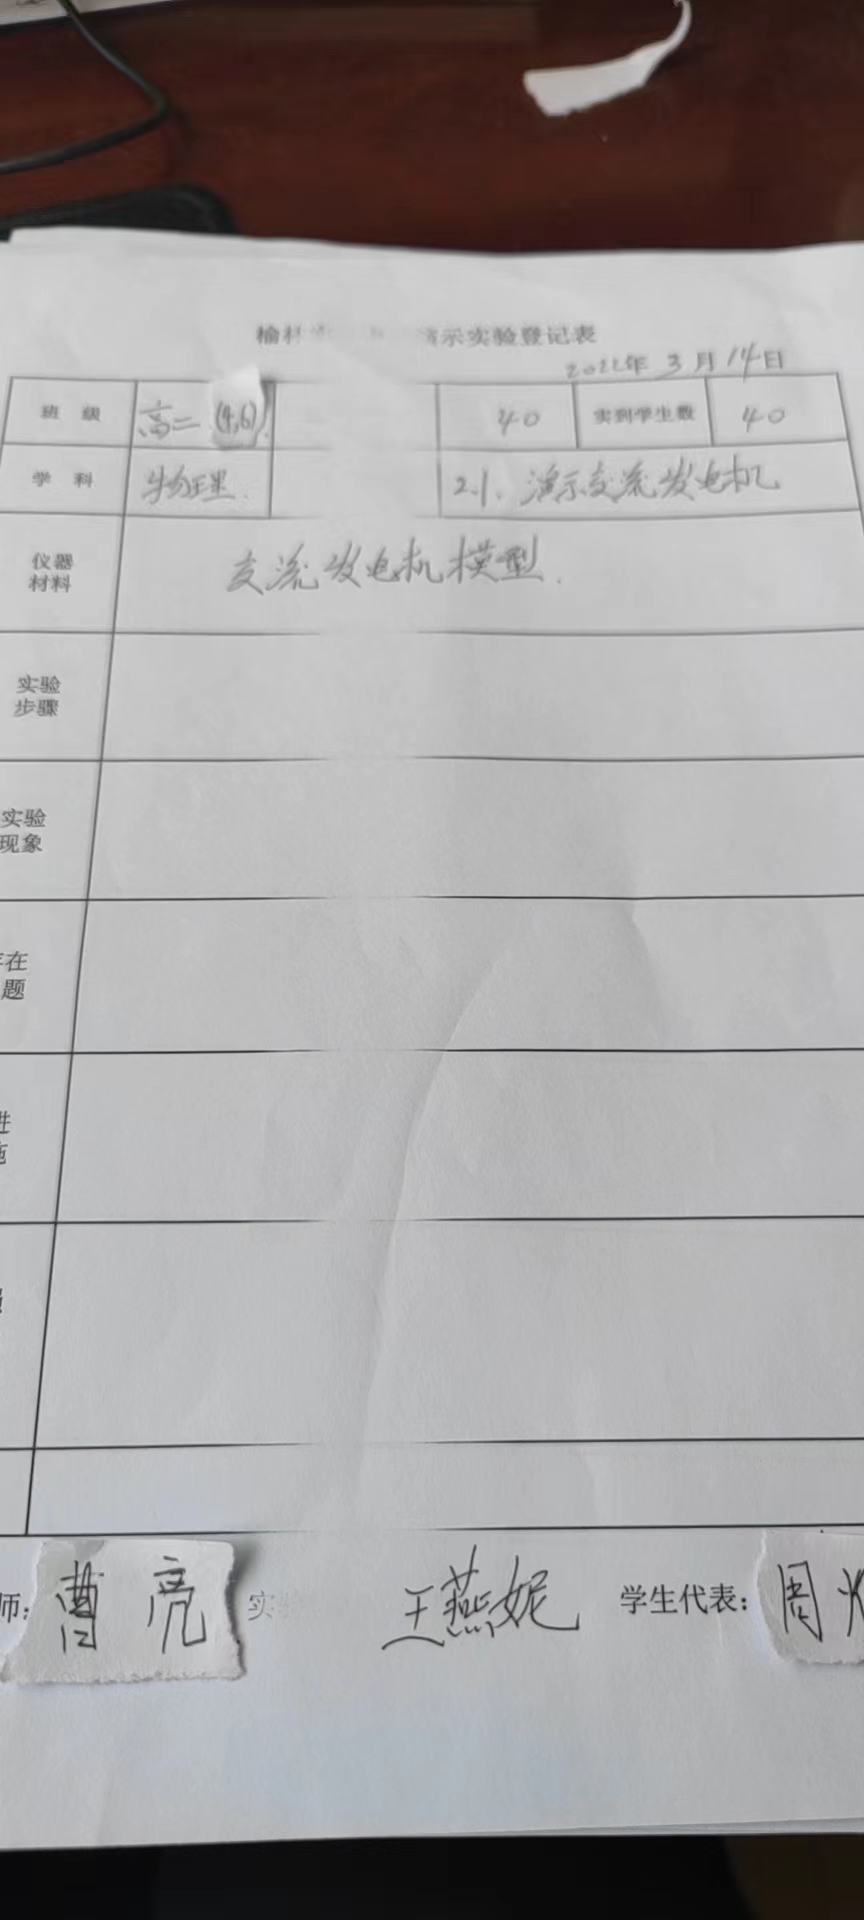 榆林 演示实验登记表
2022年3月14日
班 级 高二(4,6) 40 实到学生数 40
学 科 物理. 2.1. 演示交流发电机
仪器
材料
交流发电机模型.
实验
步骤
实验
现象
存在
题
进
师: 曹亮 实验 王燕妮 学生代表: 周